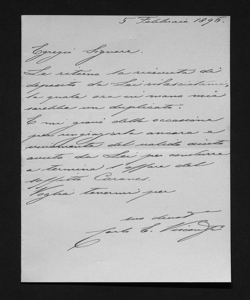 5 Febbraio 1896.
Egregio Signore.
Le ritorno la ricevuta di
deposito da Lei rilasciatami,
la quale ora in mano mia
sarebbe un duplicato.
E mi giovo della occasione
per ringraziarla ancora e
del valido aiuto
avuto da Lei per condurre
a termine l'affare del
Voglia tenermi per
suo
Carlo